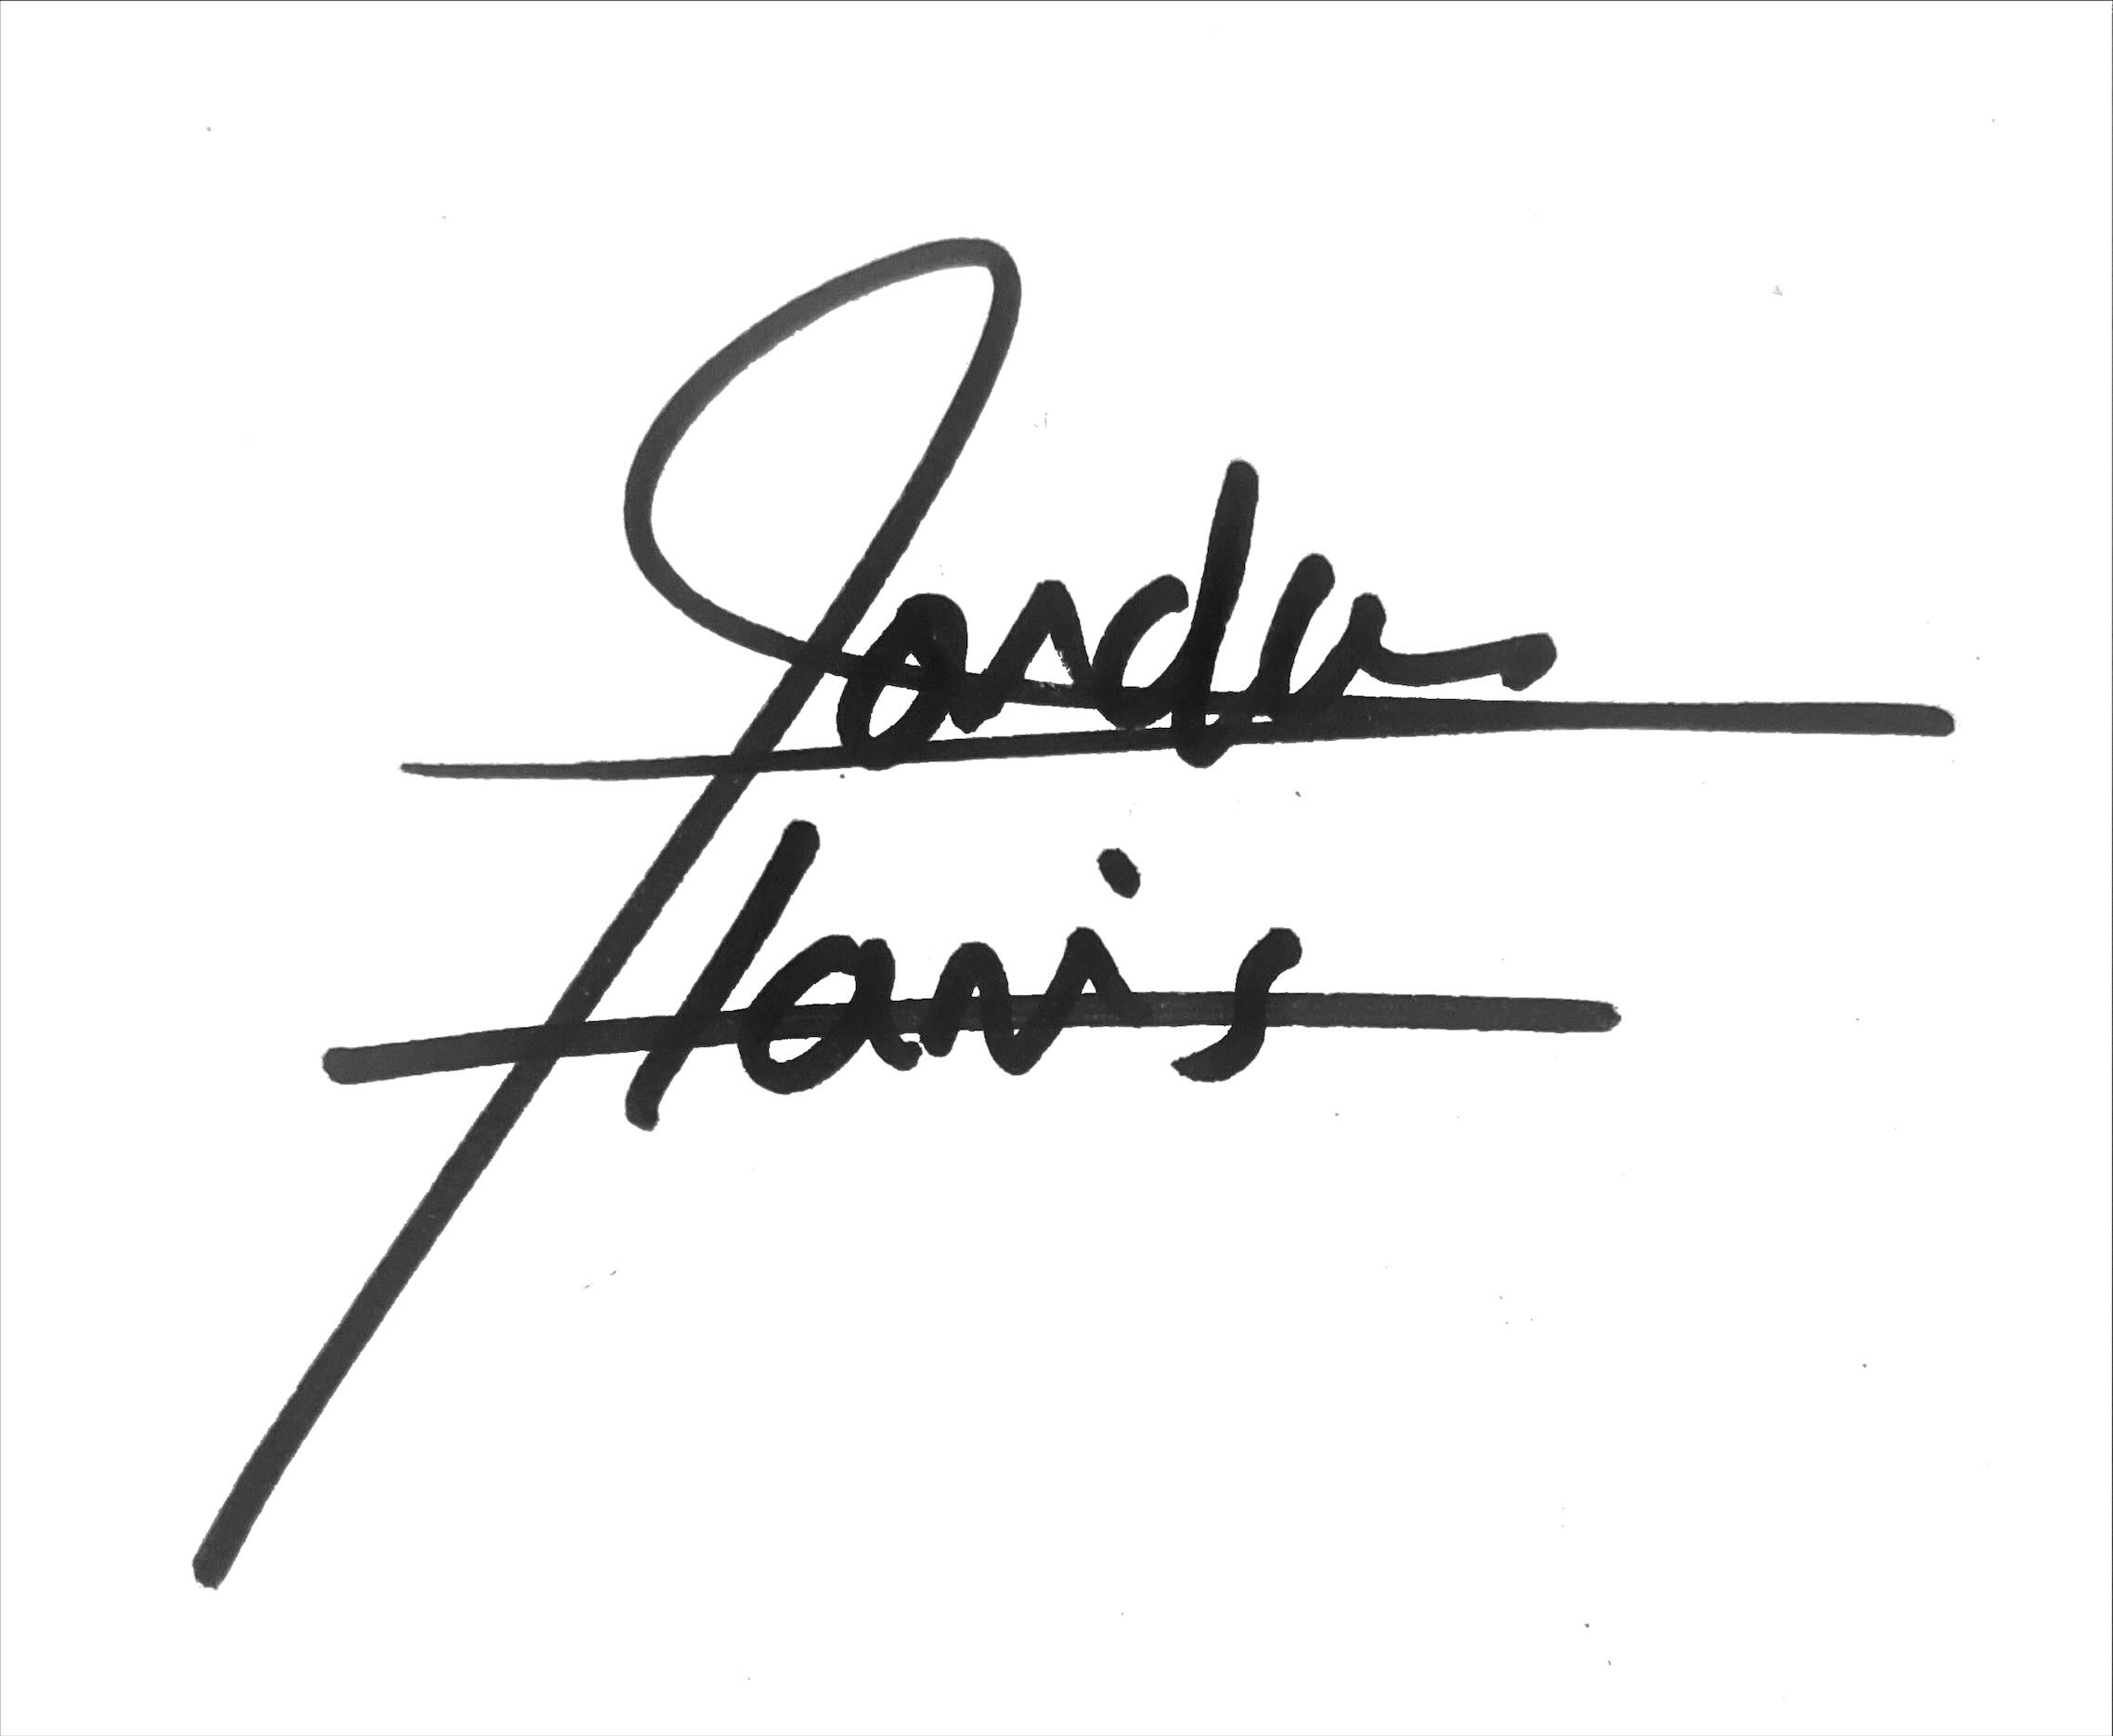 Jordan
Harris